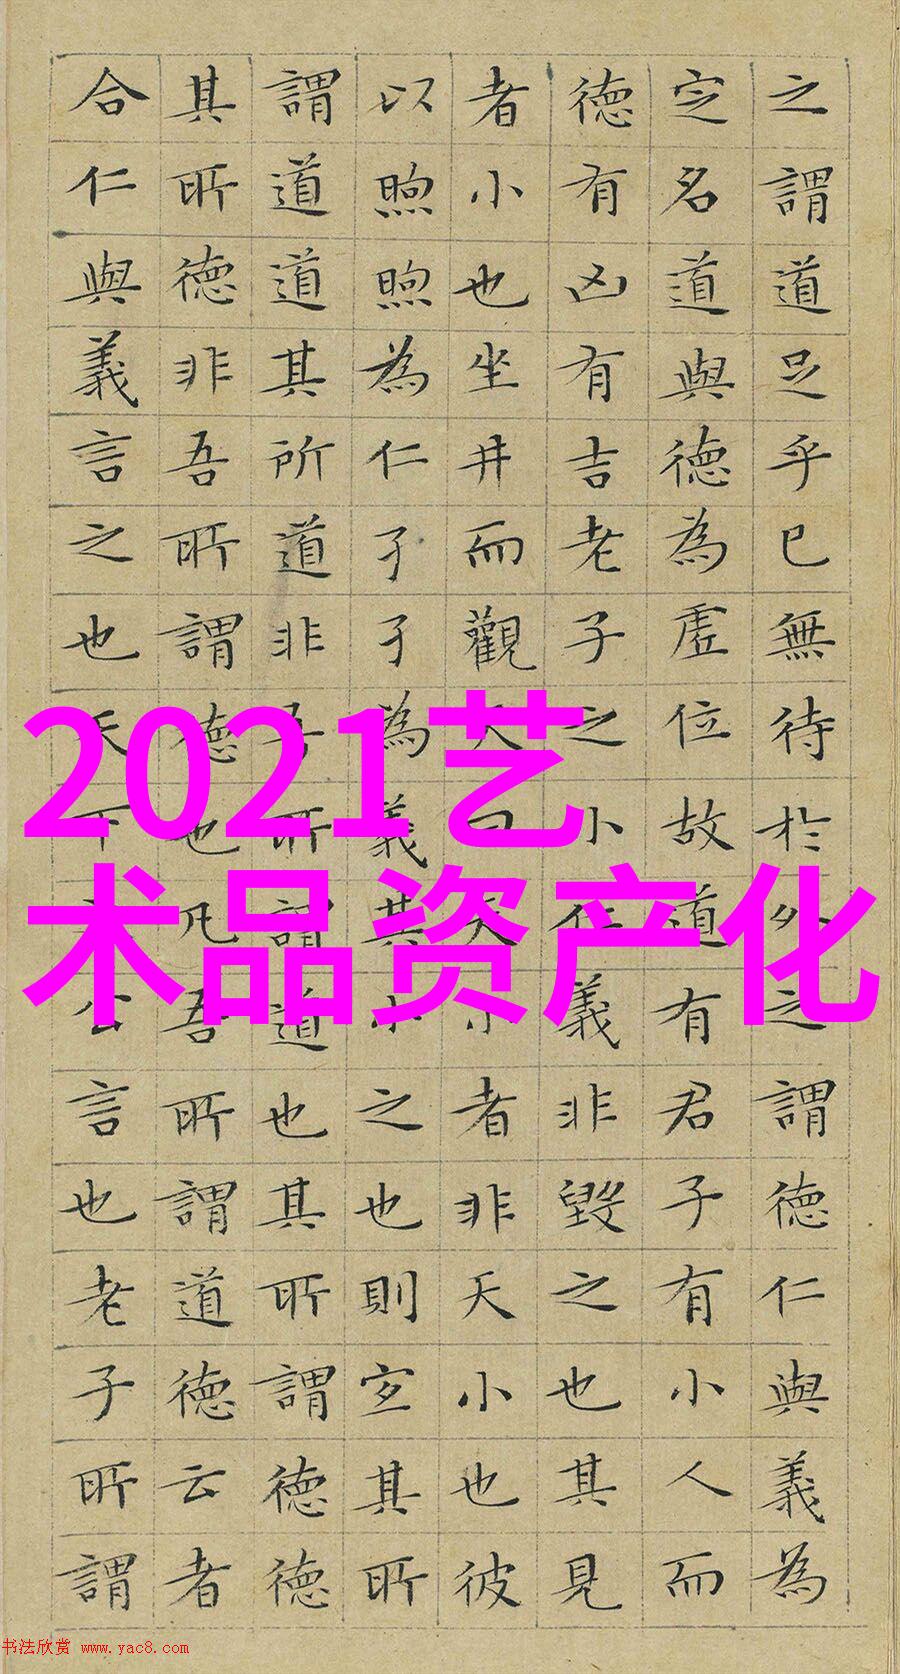 之謂道足乎已無待於外之謂德仁與義為
定名道與德為虛位故道有君子有小人而
德有凶有吉老子之小仁義非毀之也其見
者小也坐井而觀天曰天小者非天小也彼
以煦煦為仁孑孑為義其小之也則宜其所
謂道道其所道非吾所謂道也其所謂德德
其所德非吾所謂德也凡吾所謂道德云者
合仁與義言之也天下公言也老子所謂
2021艺
术品资产化
书法欣赏 www.yac8.com